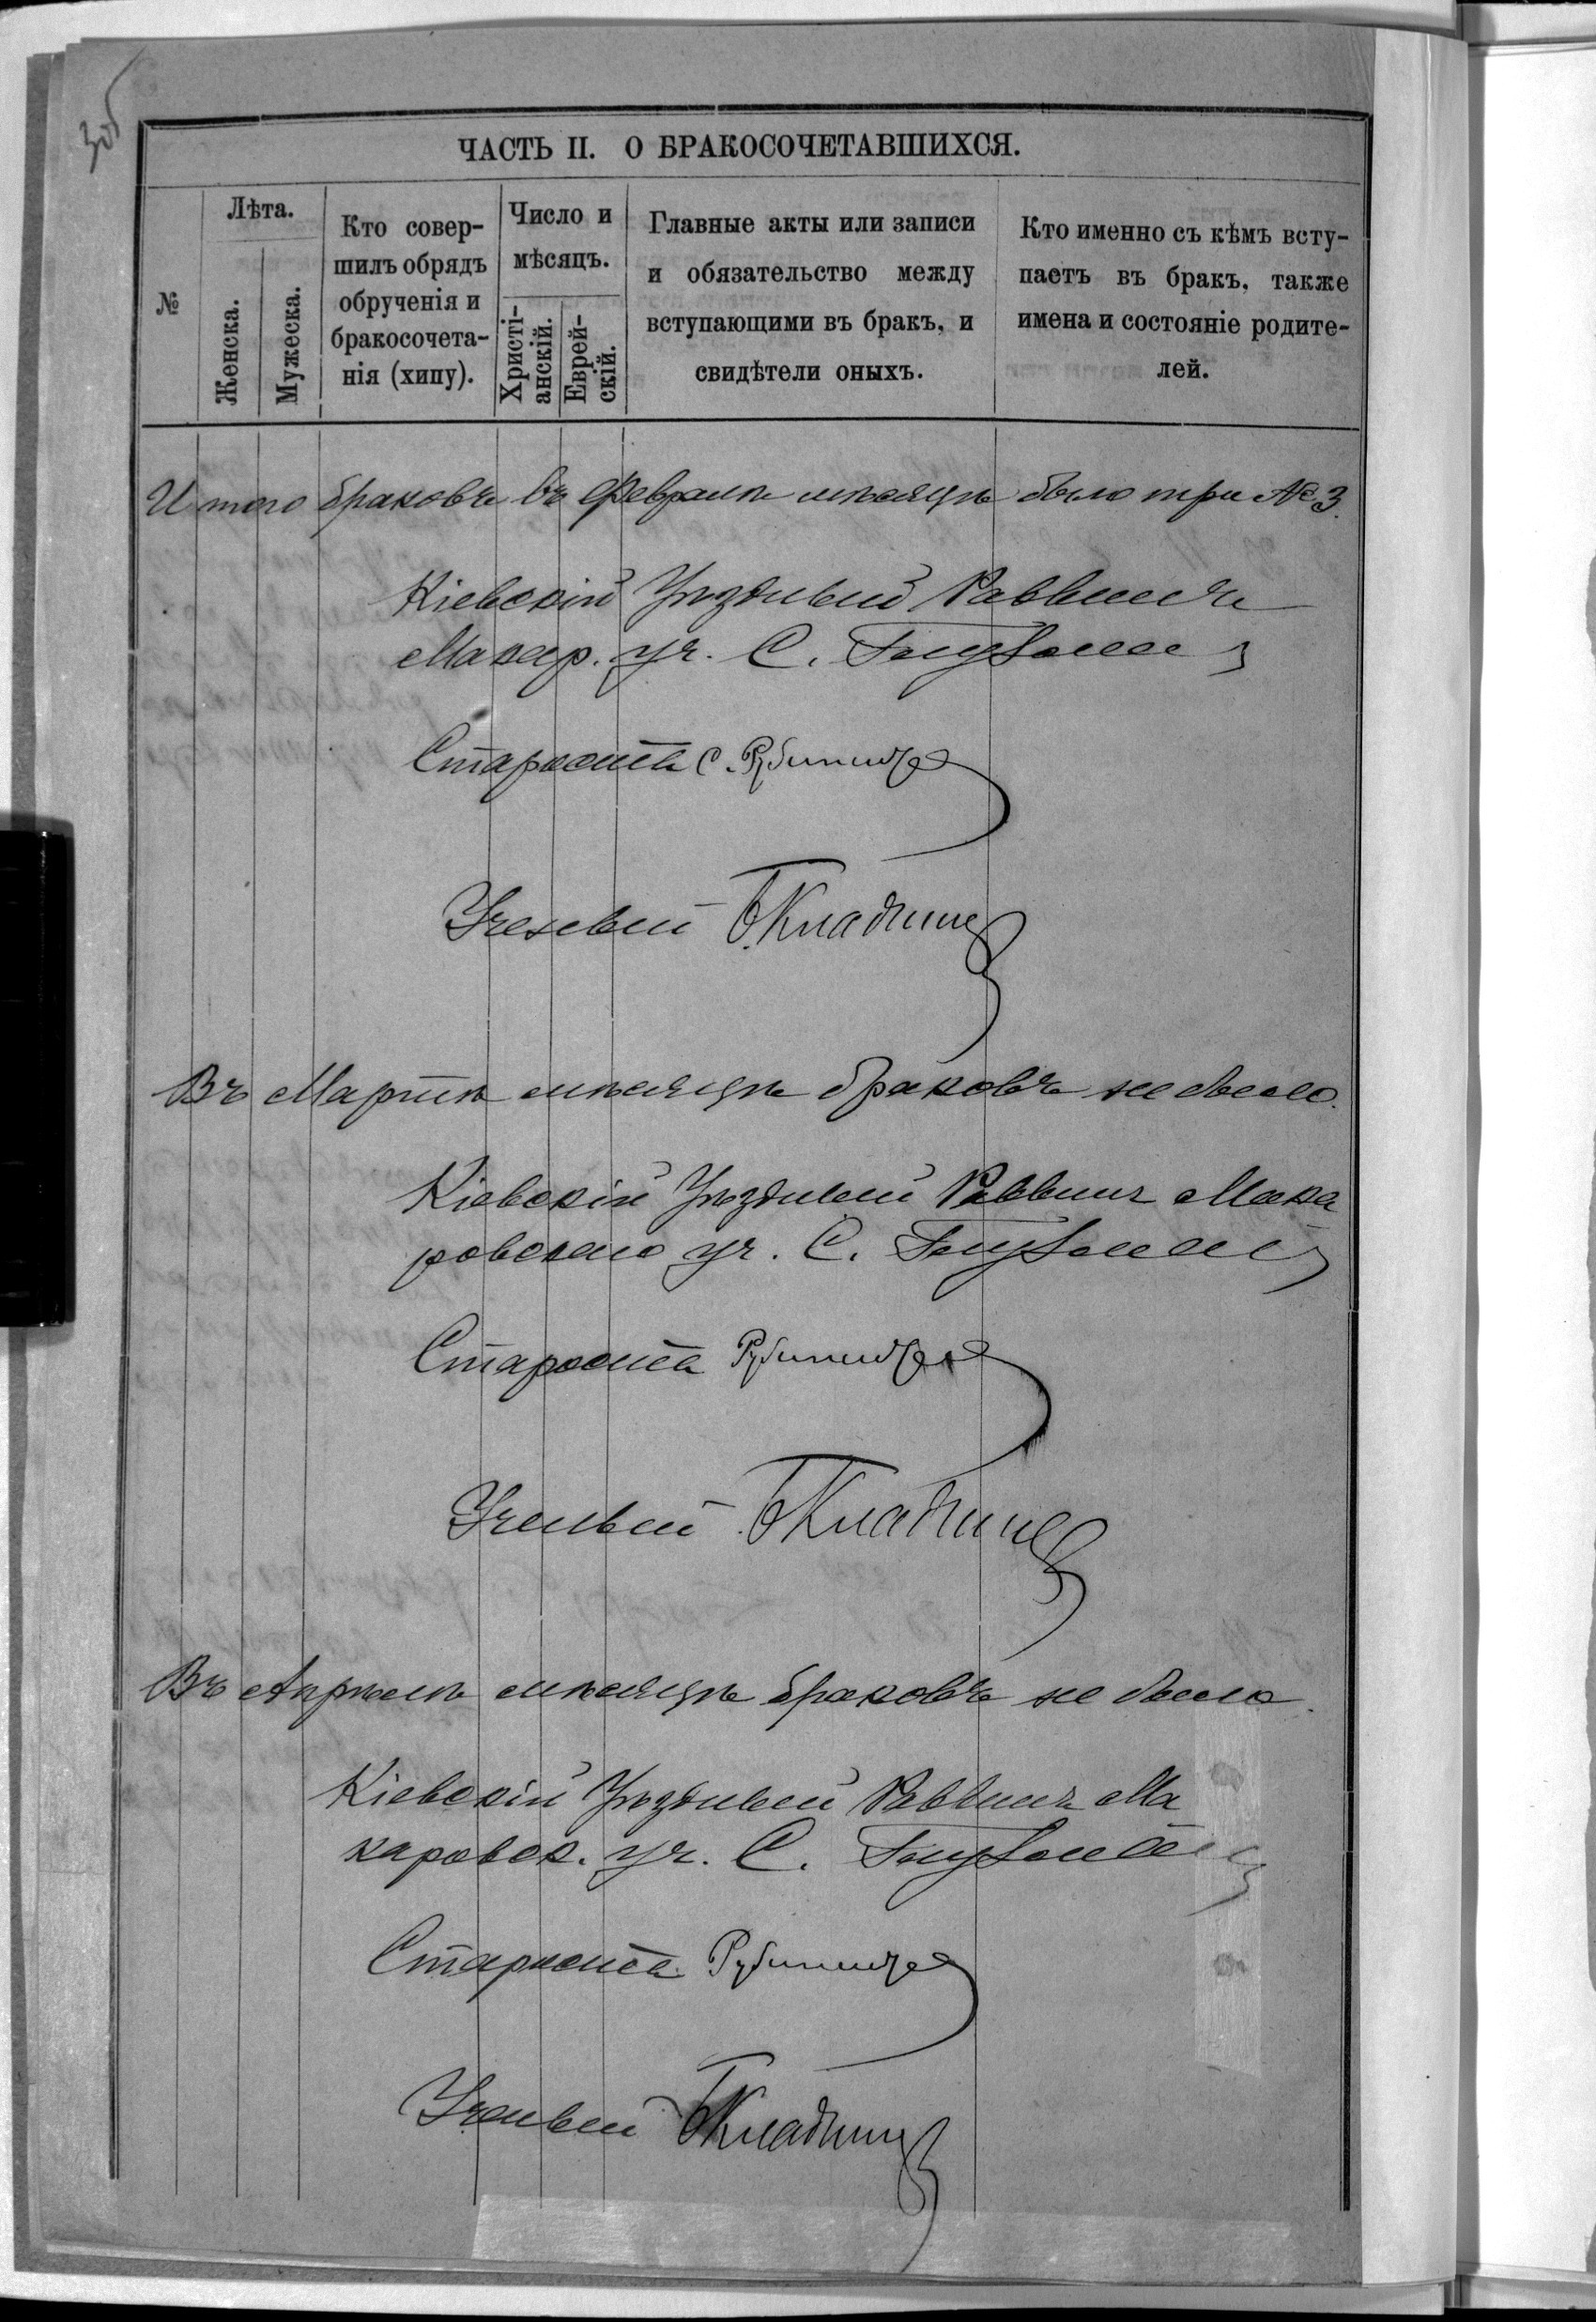 ЧАСТЬ II. О БРАКОСОЧЕТАВШИХСЯ.
№
Лѣта.
Женска.
Мужеска.
Кто совер-
шилъ обрядъ
обрученія и
бракосочета-
нія (хипу).
Число и
мѣсяцъ.
Христі-
анскій.
Еврей-
скій.
Главные акты или записи
и обязательство между
вступающими въ бракъ, и
свидѣтели оныхъ.
Кто именно съ кѣмъ всту-
паетъ въ бракъ, также
имена и состояніе родите-
лей.
Итого браковъ въ Февралѣ мѣсяцѣ было три № 3.
Кіевскій Уѣздный Раввинъ
Макар. уч. С.
Староста С.
Ученый Б.
Въ Мартѣ мѣсяцѣ браковъ не было.
Кіевскій Уѣздный Раввинъ Мака
ровскаго уч. С.
Староста
Ученый Б
Въ Апрѣлѣ мѣсяцѣ браковъ не было.
Кіевскій Уѣздный Раввинъ Ма
каровск. уч. С.
Староста
Ученый Б